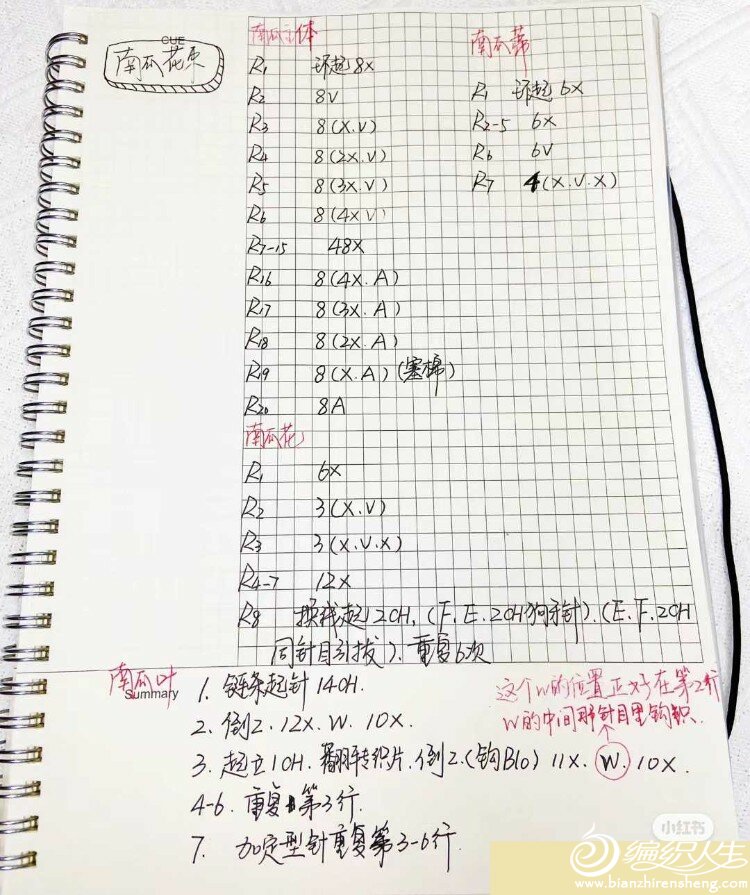 CUE
南瓜花束
南瓜主体
R1 环起8X
R2 8V
R3 8(X.V)
R4 8(2X.V)
R5 8(3X.V)
R6 8(4X V)
R7-15 48X
R16 8(4X.A)
R17 8(3X.A)
R18 8(2X.A)
R19 8(X.A)(塞棉)
R20 8A
南瓜蒂
R1 环起6X
R2-5 6X
R6 6V
R7 4(X.V.X)
南瓜花
R1 6X
R2 3(X.V)
R3 3(X.V.X)
R4-7 12X
R8 换线起12CH,(F.E.2CH狗牙针).(E.F.2CH
同针目引拔).重复6次
南瓜叶
Summary
1. 链条起针14CH.
2. 倒2.12X.W.10X.
3. 起立1CH.翻转织片.倒2.(钩Blo) 11X.W.10X.
4-6. 重复第3行.
7. 加定型针重复第3-6行.
这个W的位置正好在第2行
W的中间那针目里钩织.
小红书
编织人生
www.bianzhirensheng.com